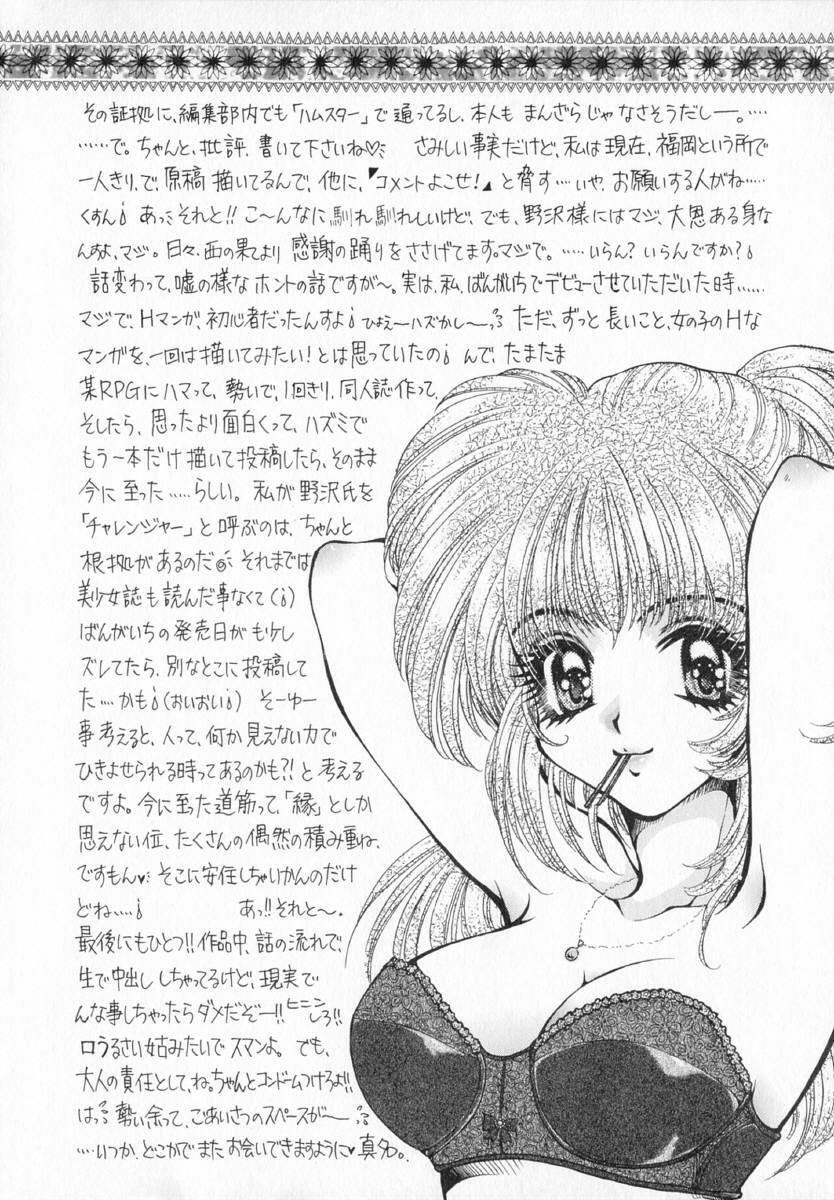 その証拠に、編集部内でも「ハムスター」で通ってるし、本人もまんざらじゃなさそうだしー。……
……で。ちゃんと、批評、書いて下さいね♡ さみしい事実だけど、私は現在、福岡という所で
一人きり、で、原稿描いてるんで、他に、『コメントよこせ!』と脅す…いや、お願いする人がね……
くすん あっ、それと!!こ〜んなに馴れ馴れしいけど、でも、野沢様にはマジ、大恩ある身な
んすよ、マジ。日々、西の果てより感謝の踊りをささげてます。マジで。……いらん?いらんですか?
話変わって、嘘の様なホントの話ですが〜。実は、私、ばんがいちでデビューさせていただいた時……
マジで、Hマンガ、初心者だったんすよ ひょえーハズかしー ただ、ずっと長いこと、女の子のHな
マンガを、一回は描いてみたい!とは思っていたの んで、たまたま
某RPGにハマって、勢いで、1回きり、同人誌作って、
そしたら、思ったより面白くって、ハズミで
もう一本だけ描いて投稿したら、そのまま
今に至った……らしい。私が野沢氏を
「チャレンジャー」と呼ぶのは、ちゃんと
根拠があるのだ それまでは
美少女誌も読んだ事なくて(!)
ばんがいちの発売日がもケし
ズレてたら、別なとこに投稿して
た…かも(おいおい) そーゆー
事考えると、人って、何か見えない力で
ひきよせられる時ってあるのかも?!と考える
ですよ。今に至った道筋って、「縁」としか
思えない位、たくさんの偶然の積み重ね、
ですもん♥ そこに安住しちゃいかんのだけ
どね…. あっ!!それと〜。
最後にもひとつ!!作品中、話の流れで、
生で中出ししちゃってるけど、現実で
んな事しちゃったらダメだぞー!!ヒニンしろ!!
口うるさい姑みたいでスマンよ。でも、
大人の責任として、ね。ちゃんとコンドームつけろよ!!
はっ 勢い余って、ごあいさつのスペースが〜
….いつか、どこかでまたお会いできますように♥真名。